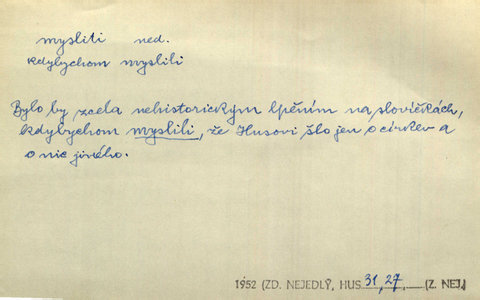 mysliti ned.
kdybychom myslili
Bylo by zcela nehistorickým lpěním na slovíčkách,
kdybychom myslili, že Husovi šlo jen o církev a
o nic jiného.
1952 (ZD. NEJEDLÝ, HUS 31, 27, (Z. NEJ.)